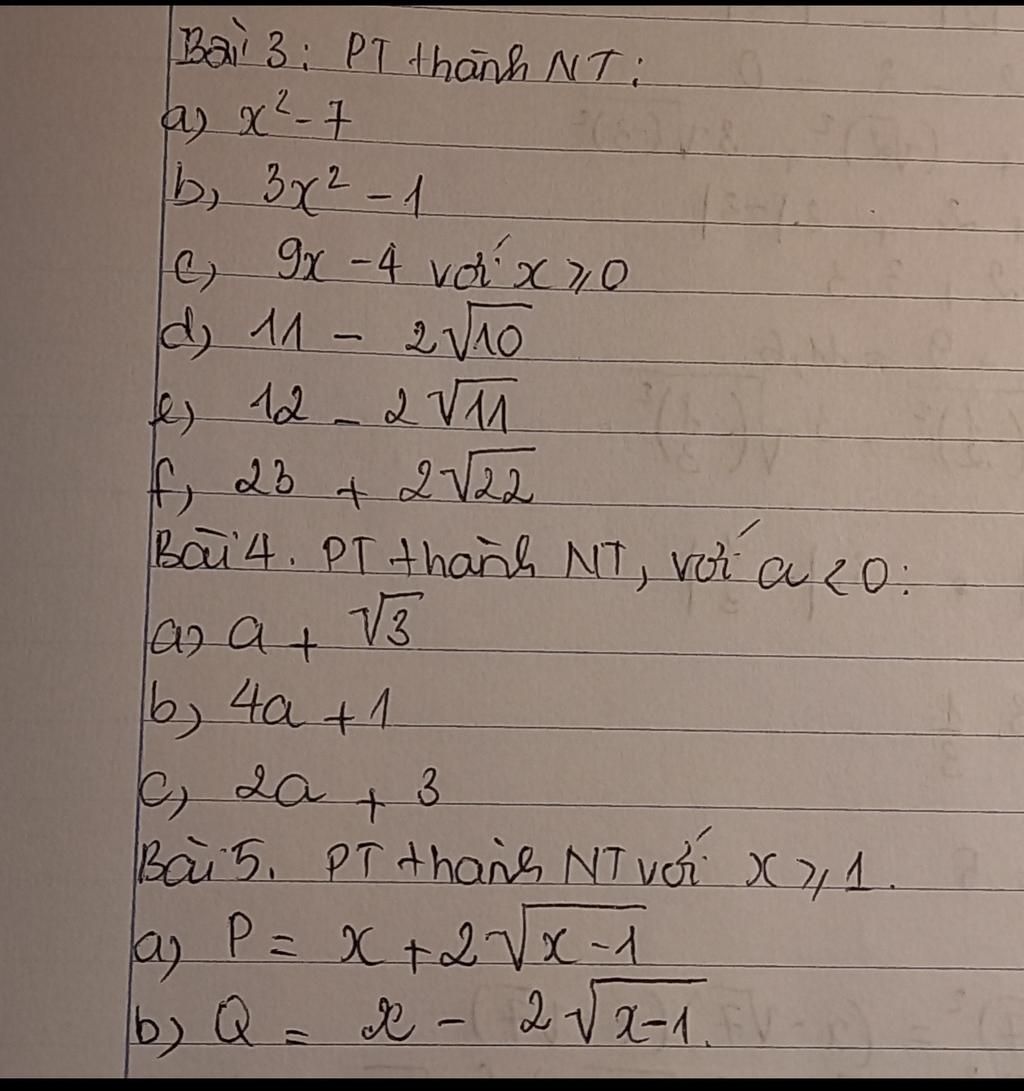 Bài 3: PT thành NT:
a) x² - 7
b) 3x² - 1
c) 9x - 4 với x ⩾ 0
d) 11 - 2√10
e) 12 - 2√11
f) 23 + 2√22
Bài 4. PT thành NT, với a < 0:
a) a + √3
b) 4a + 1
c) 2a + 3
Bài 5. PT thành NT với x ⩾ 1.
a) P = x + 2√(x-1)
b) Q = x - 2√(x-1).